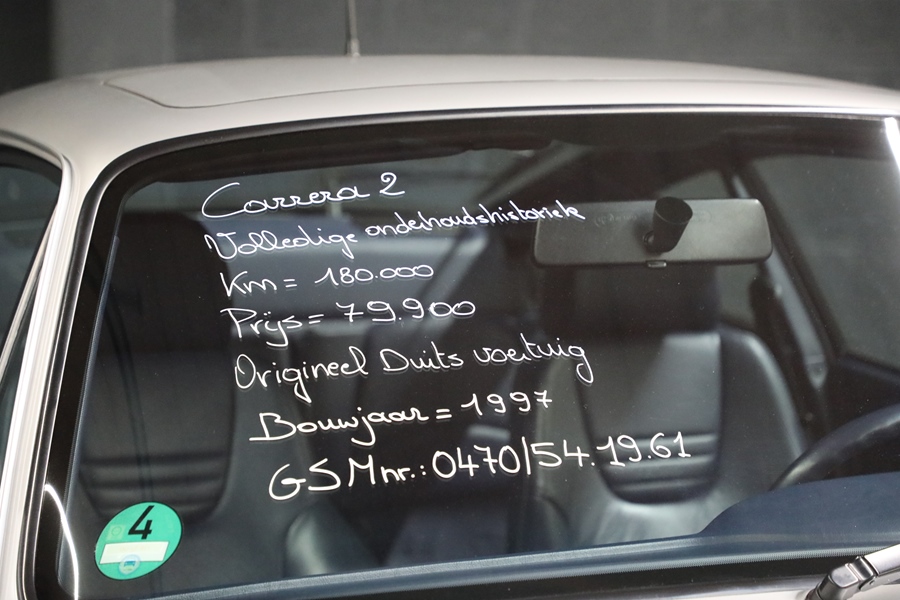 Carrera 2
Volledige onderhoudshistoriek
Km = 180.000
Prijs = 79.900
Origineel Duits voertuig
Bouwjaar = 1997
GSMnr.: 0470/54.19.61
4